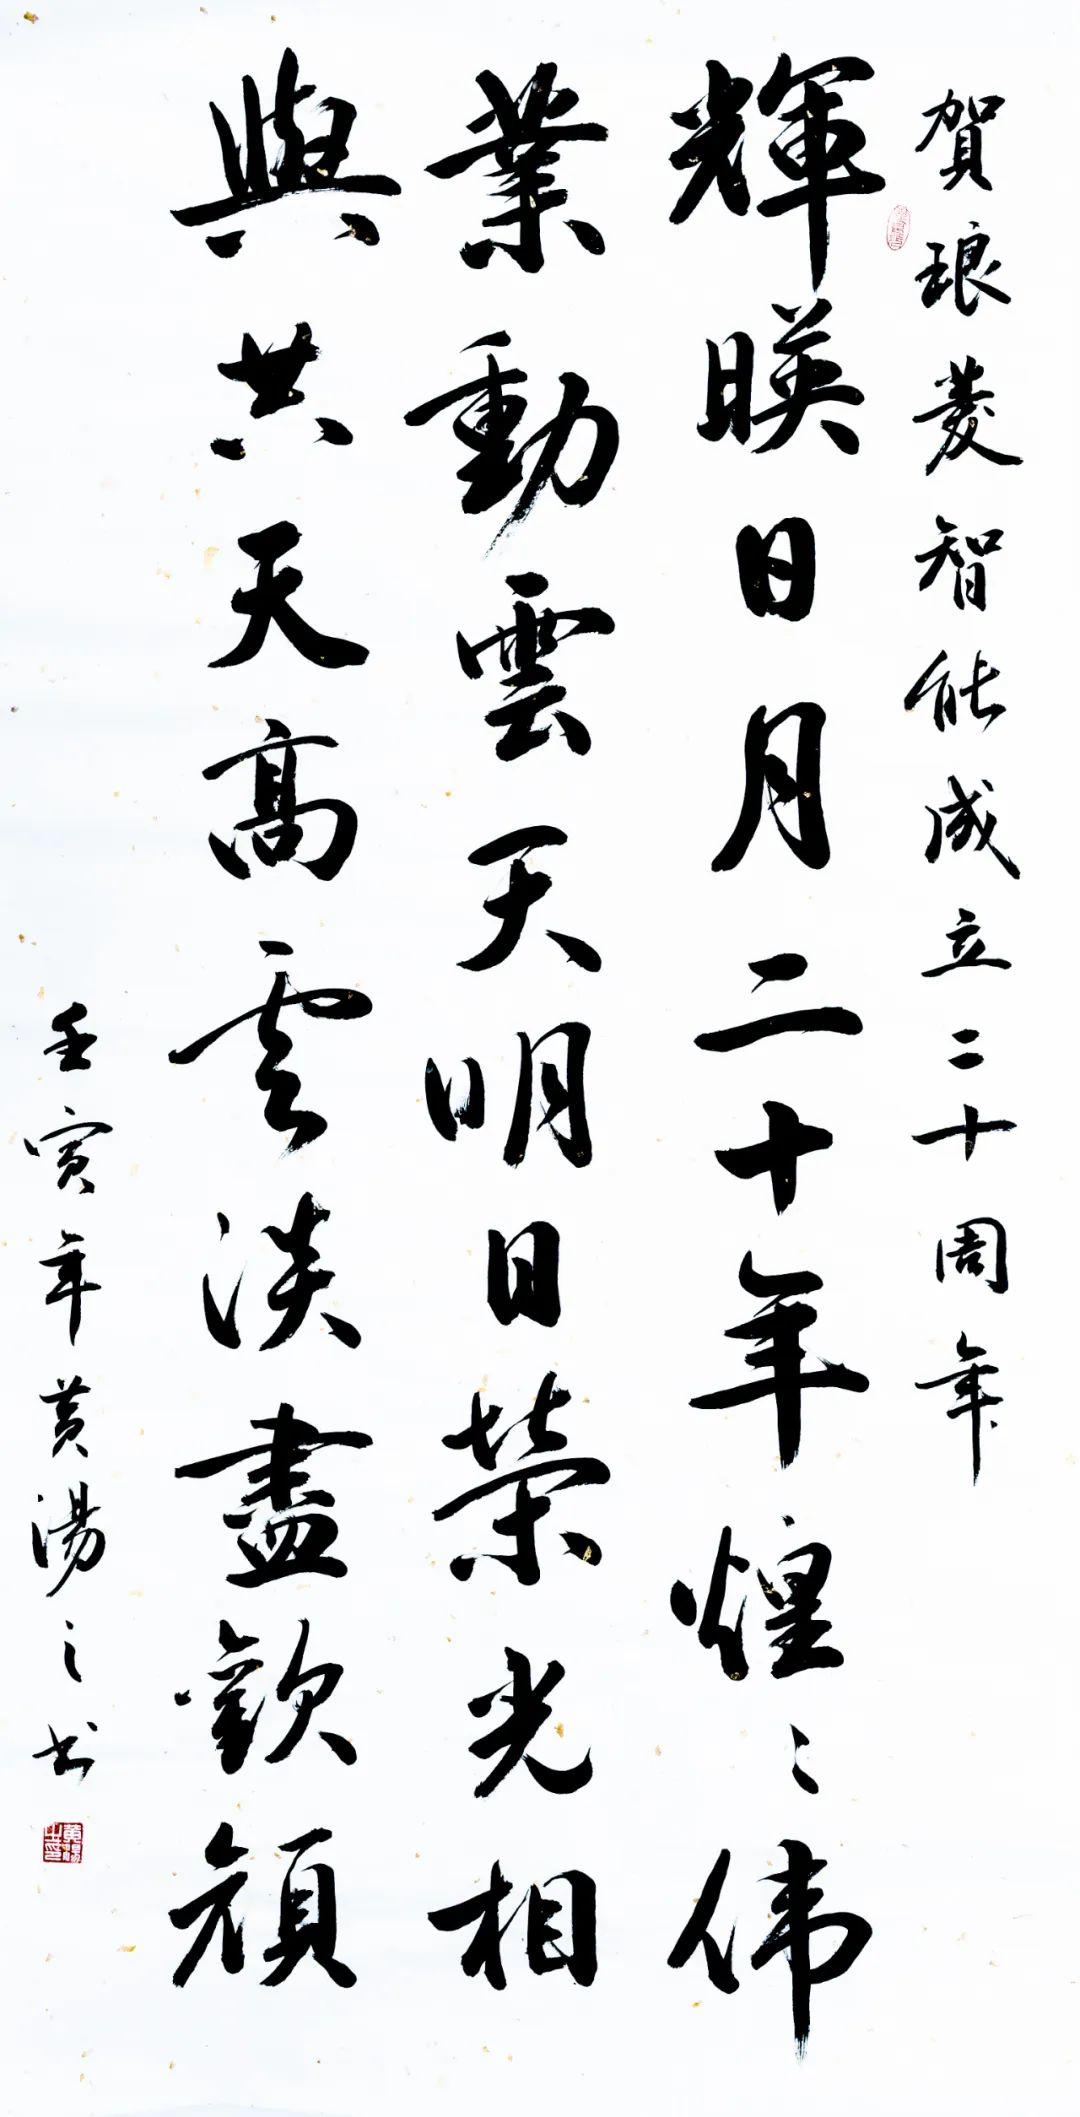 賀琅菱智能成立二十周年
輝暎日月二十年煌〻偉
業動雲天明日榮光相
與共天高雲淡盡歡顔
壬寅年黄湯之书